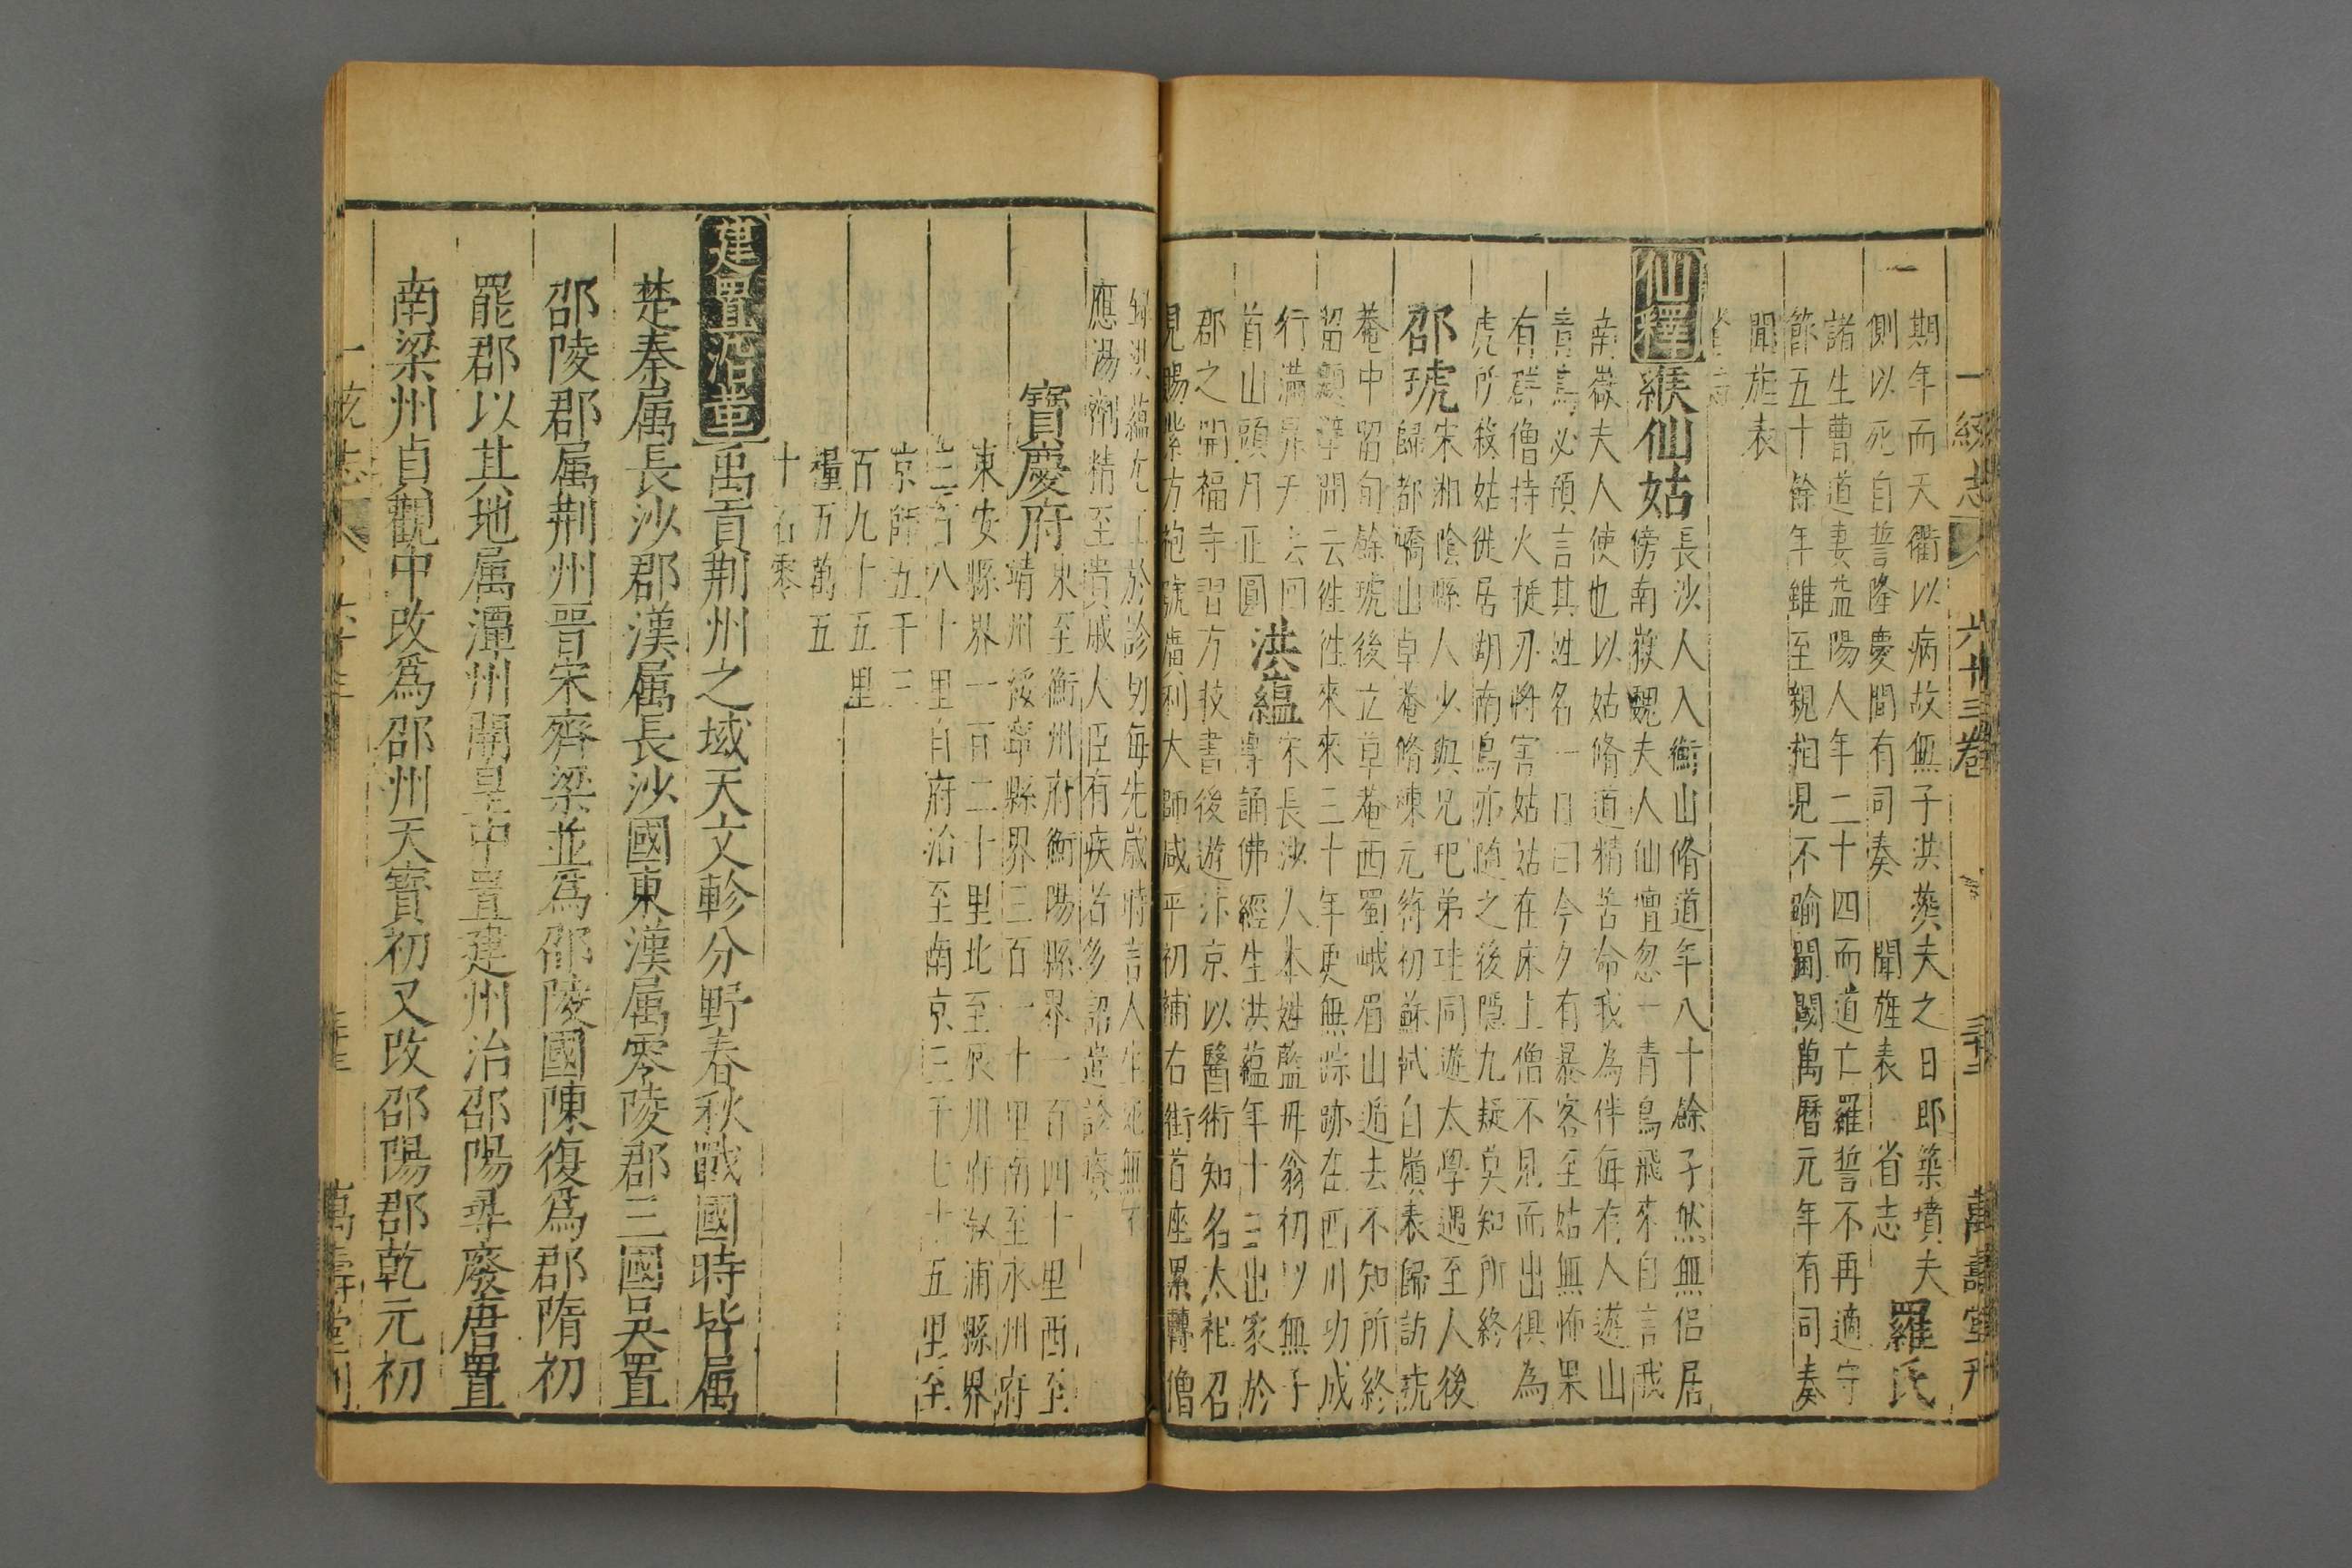 一統志 六十三卷 萬壽堂刊
期年而天衢以病故無子洪葵夫之日即築墳夫
側以死自誓隆慶間有司奏聞旌表 省志 羅氏
諸生曹道妻益陽人年二十四而道亡羅誓不再適守
節五十餘年雖至親相見不踰閫閾萬曆元年有司奏
聞旌表
省志
仙釋 緱仙姑 長沙人入衡山脩道年八十餘孑然無侣居
傍南嶽魏夫人仙壇忽一青鳥飛來自言我
南嶽夫人使也以姑脩道精苦命我為伴每有人遊山
青鳥必預言其姓名一日曰今夕有暴客至姑無怖果
有群僧持火挺刃將害姑姑在床上僧不見而出俱為
虎所殺姑徙居湖南鳥亦隨之後隱九疑莫知所終
邵琥 宋湘陰縣人少與兄玘弟珪同遊太學遇至人後
歸都嶠山卓菴脩煉元符初蘇軾自嶺表歸訪琥
菴中留旬餘琥後立草菴西蜀峨眉山遁去不知所終
留題壁間云徃徃來來三十年更無踪跡在西川功成
行滿昇天去回首山頭月正圓 洪蘊 宋長沙人本姓藍母翁初以無子
專誦佛經生洪蘊年十三出家於
郡之開福寺習方技書後遊汴京以醫術知名太祖召
見賜紫方袍號廣利大師咸平初補右街首座累轉僧
錄洪蘊尤工於診切每先歲時言人生死無不
應湯劑精至貴戚人臣有疾苦多詔遣診療
寶慶府 東至衡州府衡陽縣界一百四十里西至
靖州綏寧縣界三百一十里南至永州府
東安縣界一百二十里北至辰州府漵浦縣界
三百八十里自府治至南京三千七十五里至
京師五千三
百九十五里
糧五萬五
十石零
建置沿革 禹貢荆州之域天文軫分野春秋戰國時皆属
楚秦属長沙郡漢属長沙國東漢属零陵郡三國吴置
邵陵郡属荆州晋宋齊梁並為邵陵國陳復爲郡隋初
罷郡以其地属潭州開皇中置建州治邵陽尋廢唐置
南梁州貞觀中改爲邵州天寶初又改邵陽郡乾元初
一統志 萬壽堂刊